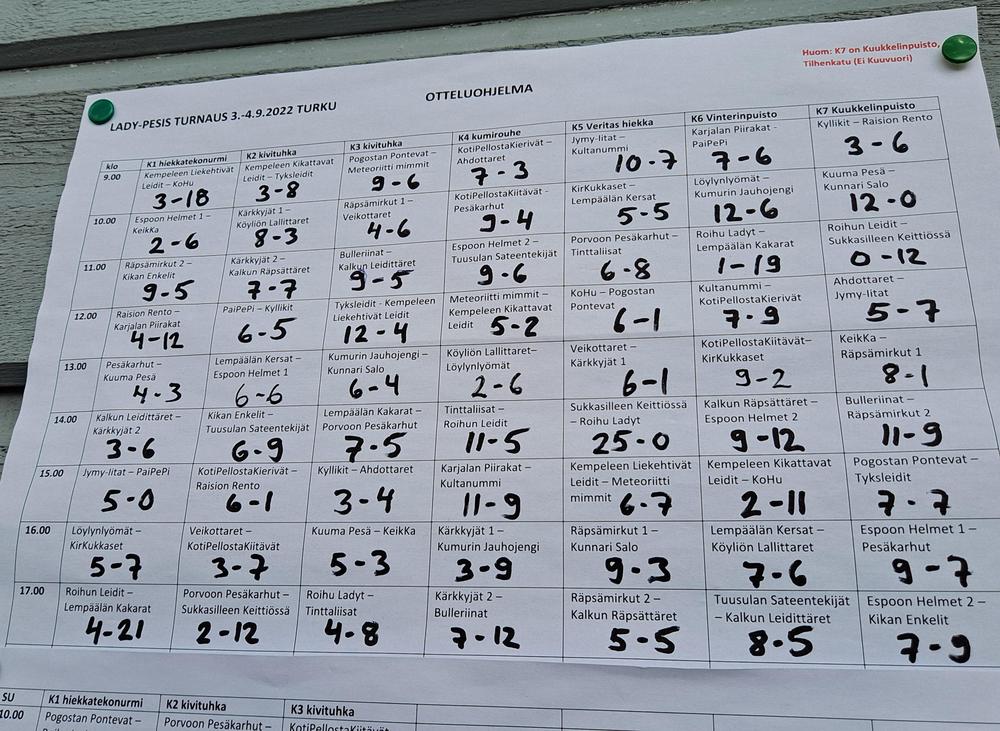 Huom: K7 on Kuukkelinpuisto,
Tilhenkatu (Ei Kuuvuori)
OTTELUOHJELMA
LADY-PESIS TURNAUS 3.-4.9.2022 TURKU
klo
K1 hiekkatekonurmi
K2 kivituhka
K3 kivituhka
K4 kumirouhe
K5 Veritas hiekka
K6 Vinterinpuisto
K7 Kuukkelinpuisto
9.00
Kempeleen Liekehtivät
Leidit – KoHu
3-18
Kempeleen Kikattavat
Leidit – Tyksleidit
3-8
Pogostan Pontevat –
Meteoriitti mimmit
9-6
KotiPellostaKierivät –
Ahdottaret
7-3
Jymy-litat –
Kultanummi
10-7
Karjalan Piirakat -
PaiPePi
7-6
Kyllikit – Raision Rento
3-6
10.00
Espoon Helmet 1 –
KeikKa
2-6
Kärkkyjät 1 –
Köyliön Lallittaret
8-3
Räpsämirkut 1 –
Veikottaret
4-6
KotiPellostaKiitävät -
Pesäkarhut
9-4
KirKukkaset –
Lempäälän Kersat
5-5
Löylynlyömät –
Kumurin Jauhojengi
12-6
Kuuma Pesä –
Kunnari Salo
12-0
11.00
Räpsämirkut 2 –
Kikan Enkelit
9-5
Kärkkyjät 2 –
Kalkun Räpsättäret
7-7
Bulleriinat –
Kalkun Leidittäret
9-5
Espoon Helmet 2 –
Tuusulan Sateentekijät
9-6
Porvoon Pesäkarhut –
Tinttaliisat
6-8
Roihu Ladyt –
Lempäälän Kakarat
1-19
Roihun Leidit –
Sukkasilleen Keittiössä
0-12
12.00
Raision Rento –
Karjalan Piirakat
4-12
PaiPePi – Kyllikit
6-5
Tyksleidit - Kempeleen
Liekehtivät Leidit
12-4
Meteoriitti mimmit –
Kempeleen Kikattavat
Leidit
5-2
KoHu – Pogostan
Pontevat
6-1
Kultanummi –
KotiPellostaKierivät
7-9
Ahdottaret –
Jymy-litat
5-7
13.00
Pesäkarhut –
Kuuma Pesä
4-3
Lempäälän Kersat –
Espoon Helmet 1
6-6
Kumurin Jauhojengi –
Kunnari Salo
6-4
Köyliön Lallittaret–
Löylynlyömät
2-6
Veikottaret –
Kärkkyjät 1
6-1
KotiPellostaKiitävät–
KirKukkaset
9-2
KeikKa –
Räpsämirkut 1
8-1
14.00
Kalkun Leidittäret –
Kärkkyjät 2
3-6
Kikan Enkelit –
Tuusulan Sateentekijät
6-9
Lempäälän Kakarat –
Porvoon Pesäkarhut
7-5
Tinttaliisat –
Roihun Leidit
11-5
Sukkasilleen Keittiössä
– Roihu Ladyt
25-0
Kalkun Räpsättäret –
Espoon Helmet 2
9-12
Bulleriinat –
Räpsämirkut 2
11-9
15.00
Jymy-litat – PaiPePi
5-0
KotiPellostaKierivät –
Raision Rento
6-1
Kyllikit – Ahdottaret
3-4
Karjalan Piirakat –
Kultanummi
11-9
Kempeleen Liekehtivät
Leidit – Meteoriitti
mimmit
6-7
Kempeleen Kikattavat
Leidit – KoHu
2-11
Pogostan Pontevat –
Tyksleidit
7-7
16.00
Löylynlyömät –
KirKukkaset
5-7
Veikottaret –
KotiPellostaKiitävät
3-7
Kuuma Pesä – KeikKa
5-3
Kärkkyjät 1 –
Kumurin Jauhojengi
3-9
Räpsämirkut 1 –
Kunnari Salo
9-3
Lempäälän Kersat –
Köyliön Lallittaret
7-6
Espoon Helmet 1 –
Pesäkarhut
9-7
17.00
Roihun Leidit –
Lempäälän Kakarat
4-21
Porvoon Pesäkarhut –
Sukkasilleen Keittiössä
2-12
Roihu Ladyt –
Tinttaliisat
4-8
Kärkkyjät 2 –
Bulleriinat
7-12
Räpsämirkut 2 –
Kalkun Räpsättäret
5-5
Tuusulan Sateentekijät
– Kalkun Leidittäret
8-5
Espoon Helmet 2 –
Kikan Enkelit
7-9
SU
K1 hiekkatekonurmi
K2 kivituhka
K3 kivituhka
10.00
Pogostan Pontevat –
Porvoon Pesäkarhut –
KotiPellostaKiitävät